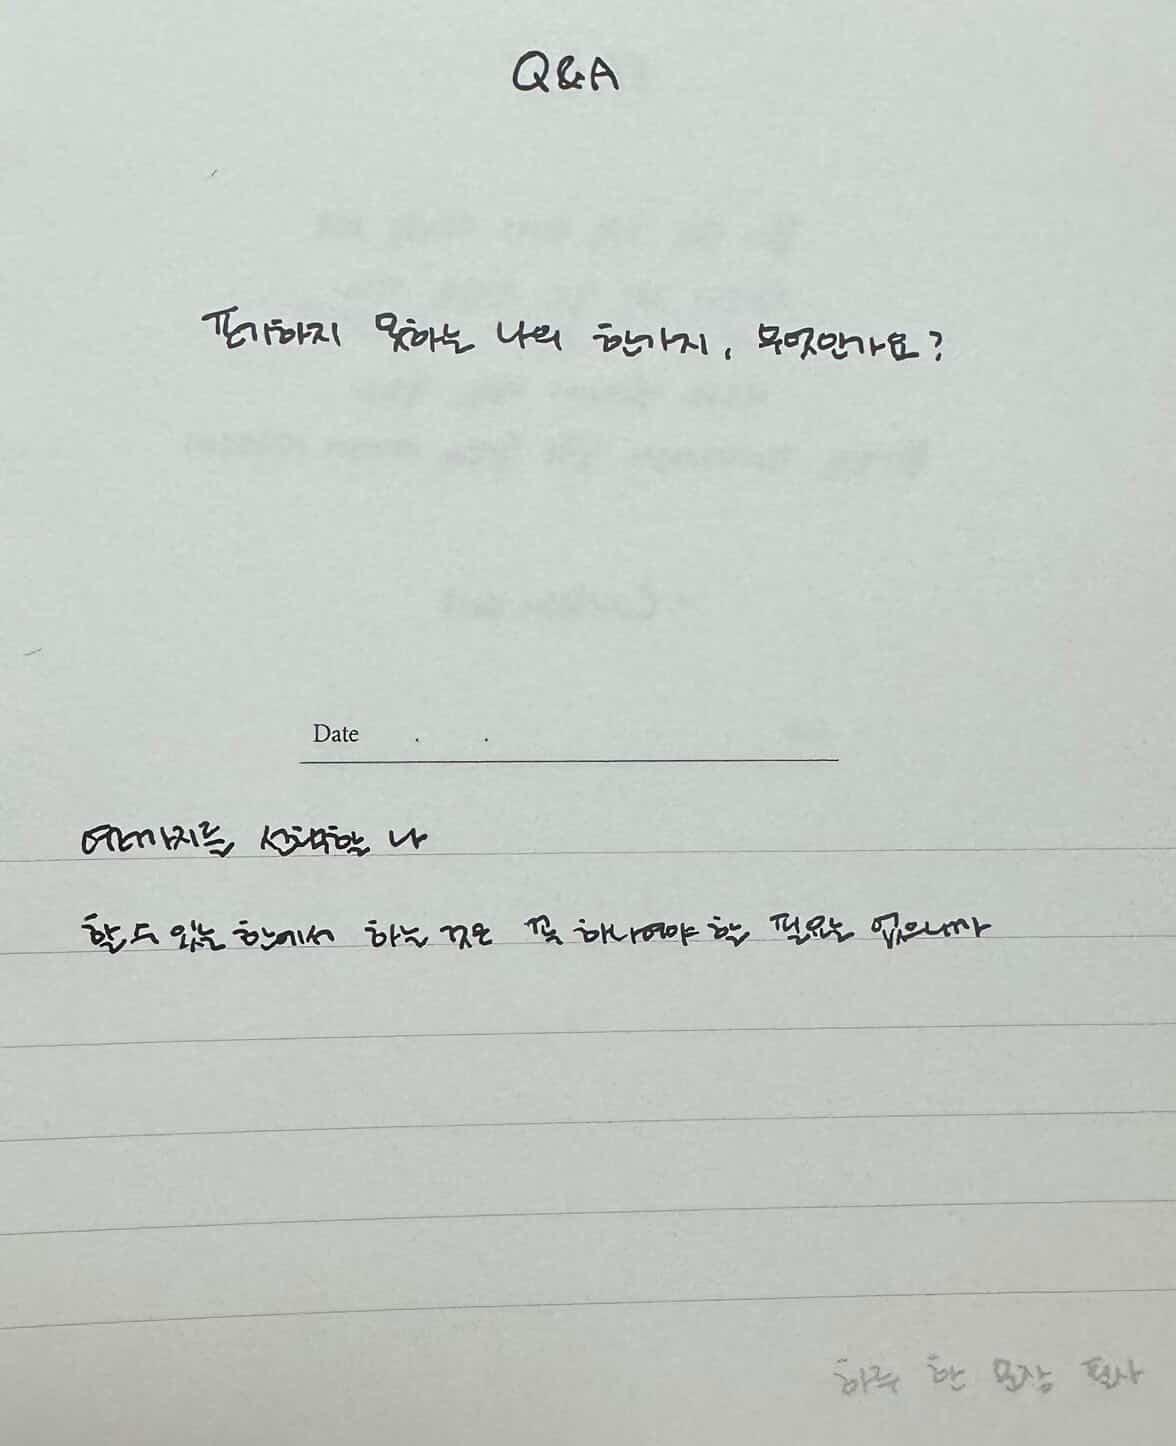 Q&A
포기하지 못하는 나의 한가지, 무엇인가요?
Date . .
여러가지를 선택하는 나
할 수 있는 한에서 하는 것은 꼭 하나여야 할 필요는 없으니까
하루 한 문장 필사